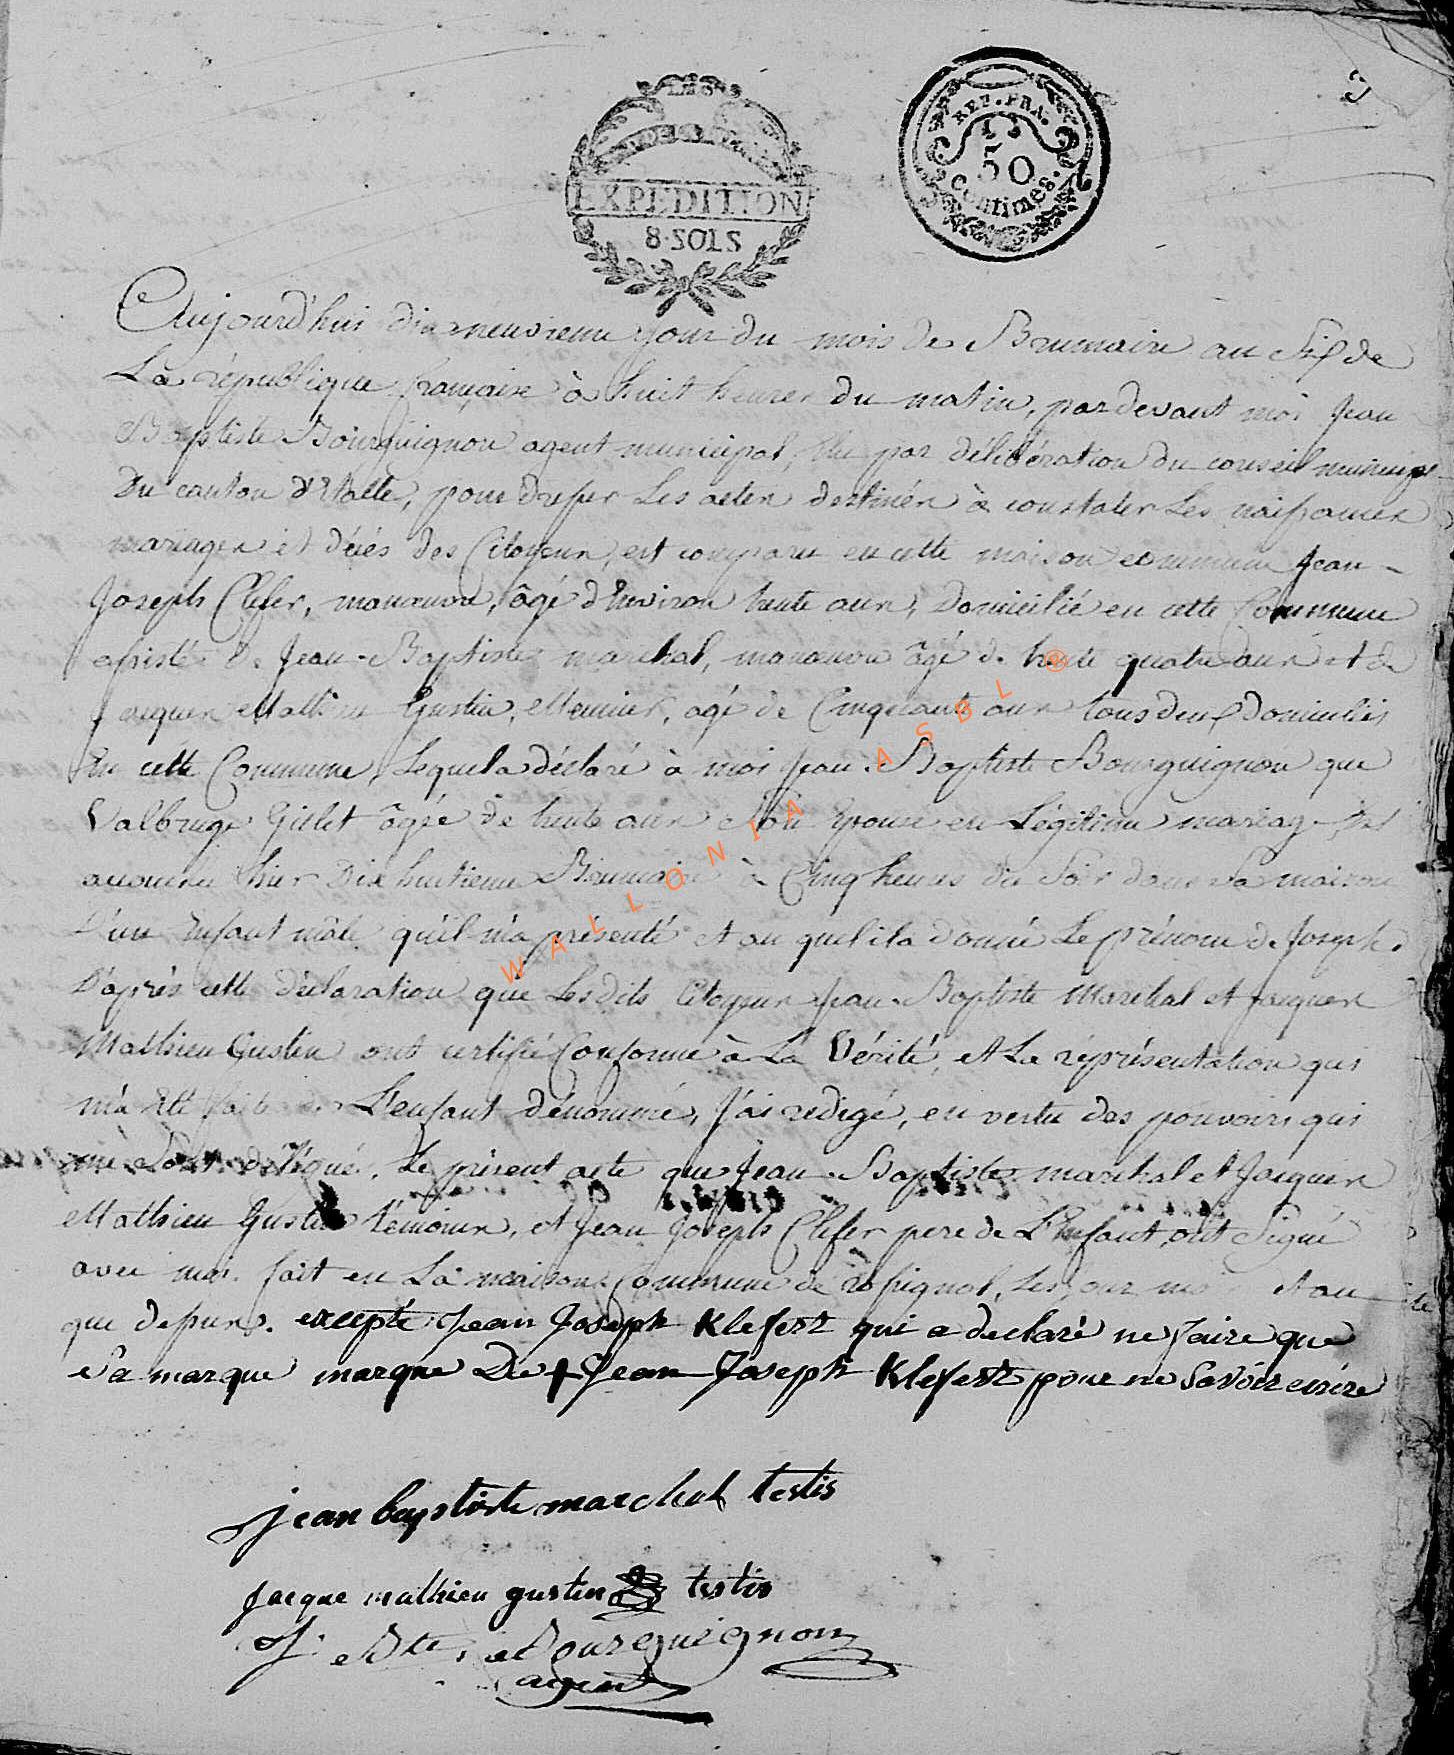 3
LOIS
EXPEDITION
8·SOLS
REP. FRA.
50
Centimes.
Aujourd'hui dix neuvieme jour du mois de Brumaire an Six de
La république française à huit heures du matin, par devant moi Jean
Baptiste Bourguignon agent municipal, Elu par délibération du conseil municipal
Du canton d'Etalle, pour dresser Les actes destinés à constater Les naissances
mariages et décés des Citoyens, est comparu en cette maison commune Jean-
Joseph Clefer, manœuvre, âgé d'Environ trente ans, Domicilié en cette Commune
assisté De Jean-Baptiste marchal, manœuvre âgé de trente quatre ans et de
jacques Mathieu Gustin, Meunier, agé de Cinquante ans tous deux Domiciliés
En cette Commune, Lequel a déclaré à moi Jean-Baptiste Bourguignon que
Valbruge Gillet âgée de trente ans Son Epouse en Légitime mariage Est
accouchée hier Dix huitieme Brumaire à Cinq heures du Soir dans Sa maison
D'un Enfant mâle qu'il m'a présenté et au quel il a donné Le prénom de Joseph.
D'après cette déclaration que Lesdits Citoyens Jean-Baptiste Marchal et Jacques
Mathieu Gustin ont certifié Conforme à La Vérité, et La représentation qui
m'a été faite de L'enfant dénommé, J'ai redigé, en vertu des pouvoirs qui
me Sont délégué. Le présent acte que Jean-Baptiste marchal et Jacques
Mathieu Gustin témoins, et Jean Joseph Clefer pere de L'Enfant, ont Signé
avec moi. fait en La maison Commune de rossignol, Les jour mo et an
que dessus. excepte Jean Joseph Klefert qui a declaré ne faire que
Sa marque marque De + Jean Joseph Klefert pour ne Savoir ecrire
jean baptiste marchal testis
Jacque mathieu gustin testis
J. Bte. Bourguignon
agent
WALLONIA ASBL ®